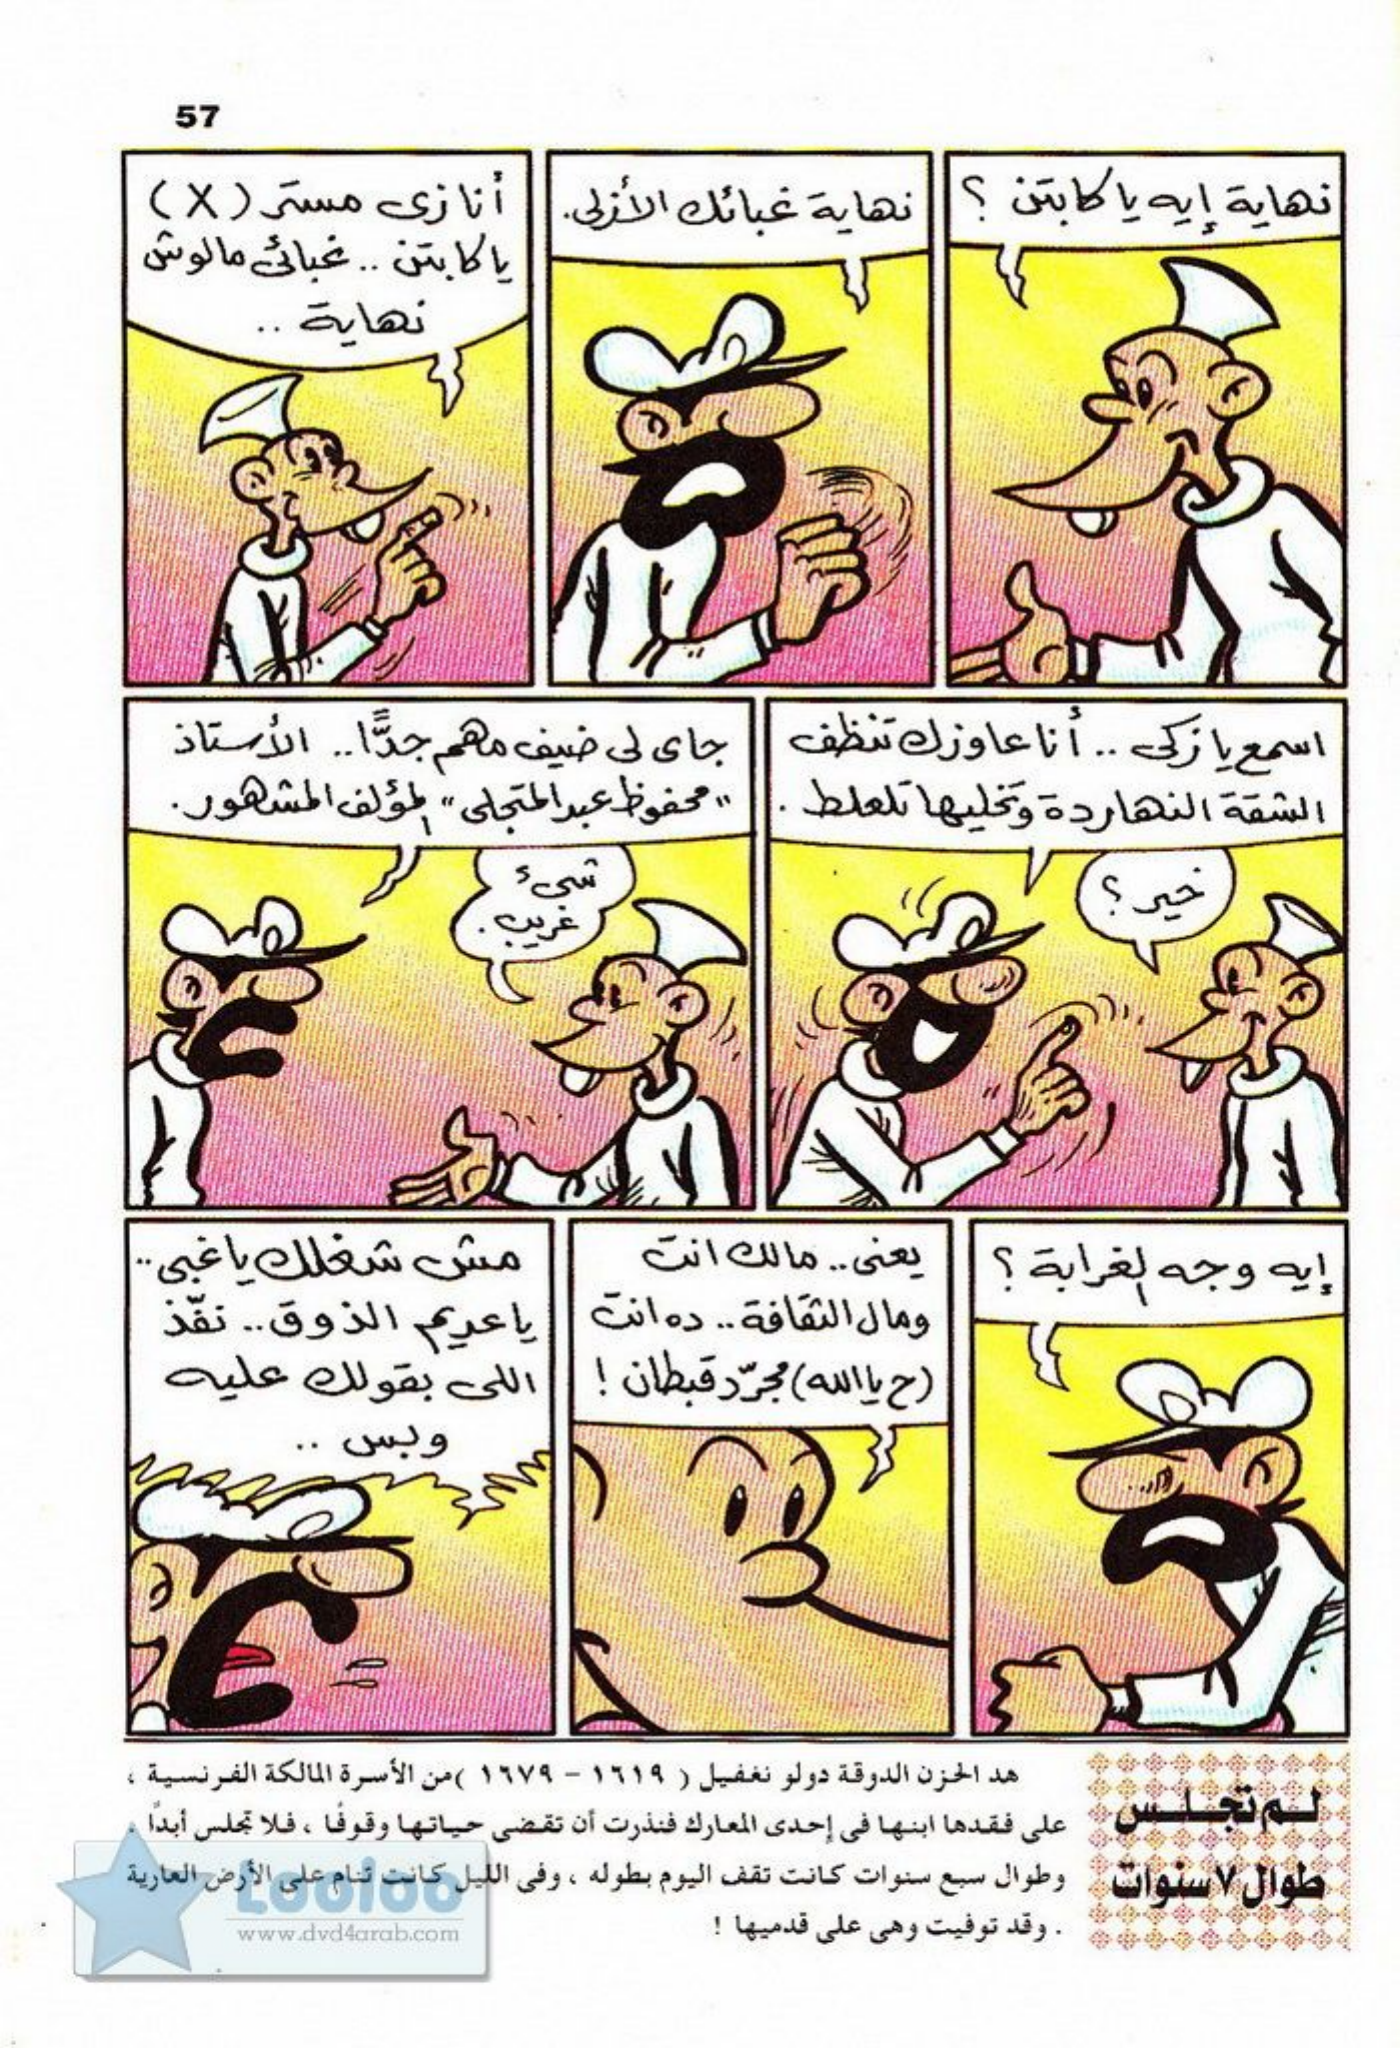 57
نهاية إيه يا كابتن ؟
نهاية غبائك الأزلى.
أنا زى مستر (X)
يا كابتن .. غبائى مالوش
نهاية ..
اسمع يا زكى .. أنا عاوزك تنظف
الشقة النهاردة وتخليها تلعلط .
خير ؟
جاى لى ضيف مهم جدًّا .. الأستاذ
"محفوظ عبد المتجلى" المؤلف المشهور .
شىء
غريب .
إيه وجه الغرابة ؟
يعنى .. مالك انت
ومال الثقافة .. ده انت
(ح يا الله) مجرّد قبطان !
مش شغلك يا غبى ..
يا عديم الذوق .. نفّذ
اللى بقولك عليه
وبس ..
لم تجلس
طوال ٧ سنوات
هد الحزن الدوقة دولو نغفيل ( ١٦١٩ – ١٦٧٩ )من الأسرة المالكة الفرنسية ،
على فقدها ابنها فى إحدى المعارك فنذرت أن تقضى حياتها وقوفًا ، فلا تجلس أبداً .
وطوال سبع سنوات كانت تقف اليوم بطوله ، وفى الليل كانت تنام على الأرض العارية
. وقد توفيت وهى على قدميها !
Looloo
www.dvd4arab.com